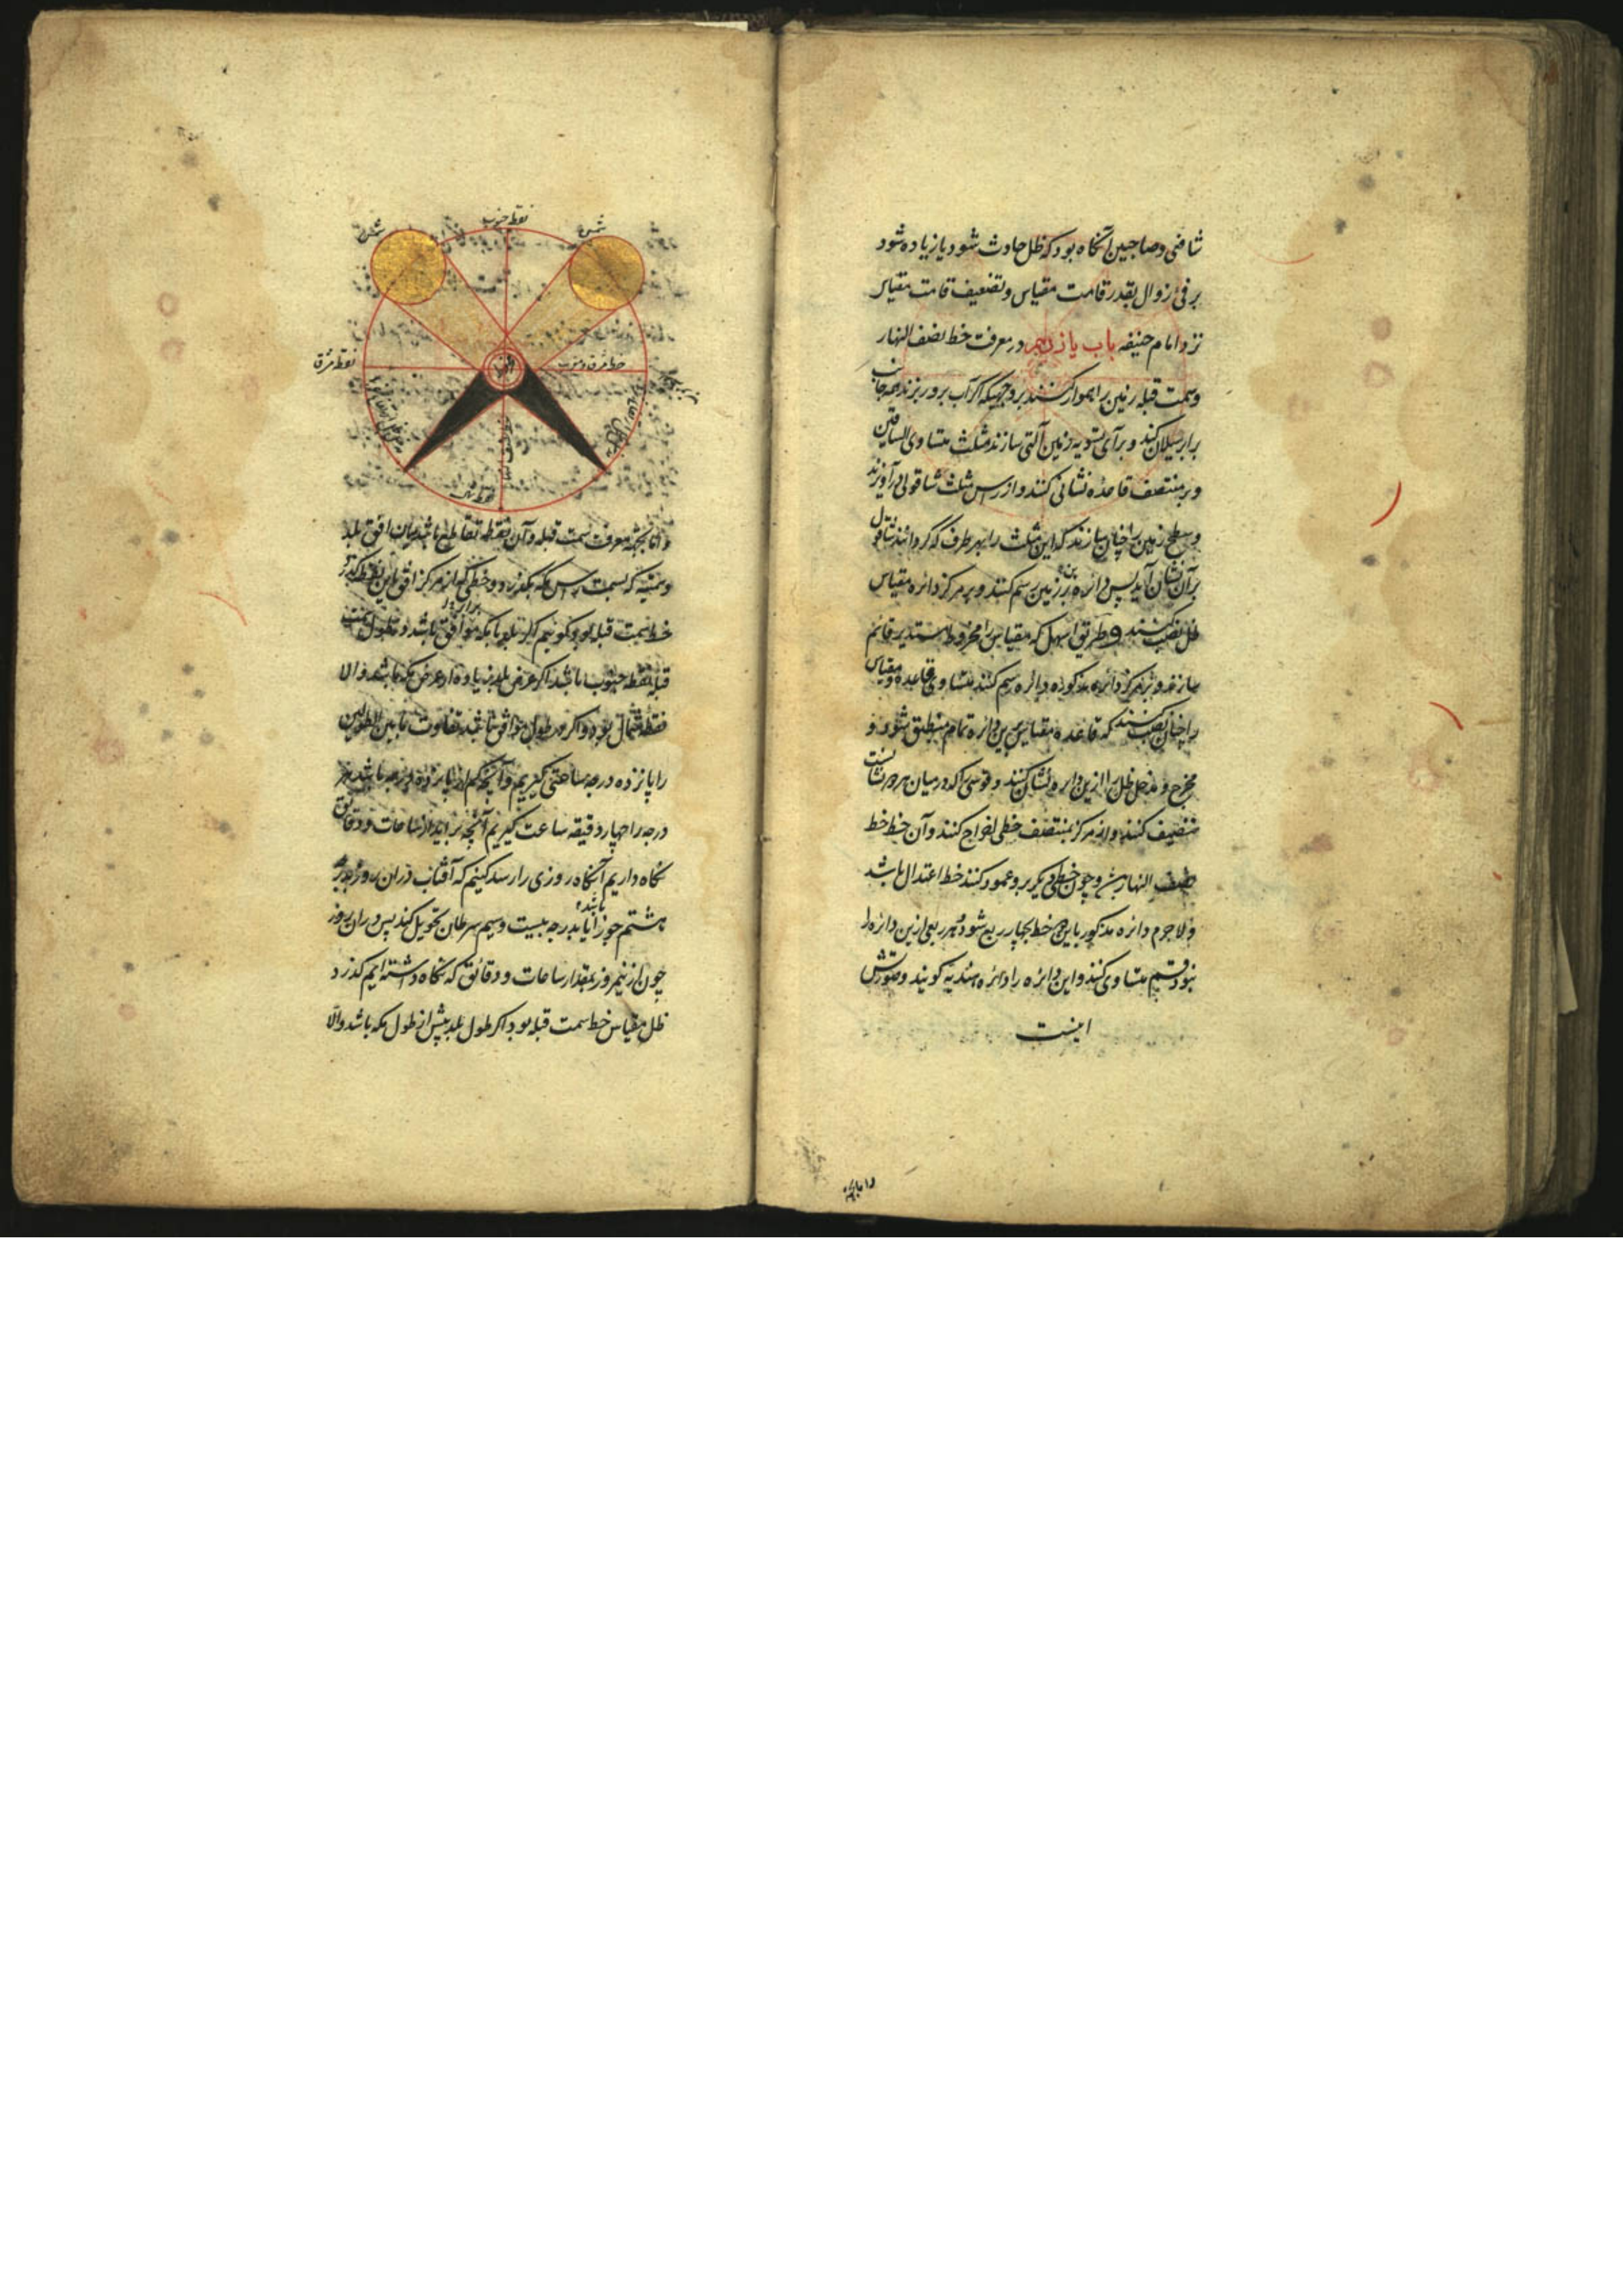 شافعی و صاحبین آنگاه بود که ظل حادث شود یا زیاده شود
بر فئ زوال بقدر قامت مقیاس و تضعیف قامت مقیاس
نزد امام حنیفه باب یازدهم در معرفت خط نصف النهار
و سمت قبله زمین را هموار کنند بروجهیکه اگر آب برو ریزند بهمه جانب
برابر سیلان کند و برای تسویه زمین آلتی سازند مثلث متساوی الساقین
و بر منتصف قاعده نشانی کنند و از رأس مثلث شاقولی درآویزند
و سطح زمین را چنان سازند که این مثلث را بهر طرف که گردانند شاقول
بر آن نشان آید پس دائره برین زمین رسم کنند و بر مرکز دائره مقیاس
ظل نصب کنند و طریق اسهل که مقیاس را مخروط مستدیر قائم
سازند و بر مرکز دائره مذکوره دائره رسم کنند متساوی قاعده مقیاس و مقیاس
را چنان نصب کنند که قاعده مقیاس برین دائره تمام منطبق شود و
مخرج و مدخل ظل را ازین دایره نشان کنند و قوسی را که در میان هر دو نشانست
تنصیف کنند و از مرکز بمنتصف خطی اخراج کنند و آن خط خط
نصف النهار بود و چون خطی دیگر برو عمود کنند خط اعتدال باشد
و لاجرم دائره مذکور باین دو خط بچهار ربع شود و هر ربعی ازین دائره را
بنود قسم متساوی کنند و این دائره را دائره هندیه گویند و صورتش
اینست
و اما
نقطه جنوب
شمس
شمس
نقطه مشرق
خط مشرق و مغرب
مقیاس
خط نصف النهار
نقطه شمال
و اما معرفت سمت قبله و آن نقطه تقاطع باشد میان افق بلد
و سمتیه که بسمت رأس مکه بگذرد و خطی که از مرکز افق باین نقطه گذرد
خط سمت قبله بود گوئیم اگر بلد با مکه موافق باشد در طول سمت
قبله نقطه جنوب باشد اگر عرض بلد زیاده از عرض مکه باشد و الا
نقطه شمال بود و اگر در طول موافق نباشد تفاوت ما بین الطولین
را پانزده درجه ساعتی گیریم و آنچه کم از پانزده درجه باشد هر
درجه را چهار دقیقه ساعت گیریم آنچه برآید از ساعات و دقایق
نگاه داریم آنگاه روزی را رسد کنیم که آفتاب در آن روز بدرجه
هشتم جوزا باشد یا بدرجه بیست و سیم سرطان تحویل کند پس در آن روز
چون از نیمروز بمقدار ساعات و دقائق که نگاه داشته ایم گذرد
ظل مقیاس خط سمت قبله بود اگر طول بلد بیش از طول مکه باشد و الا